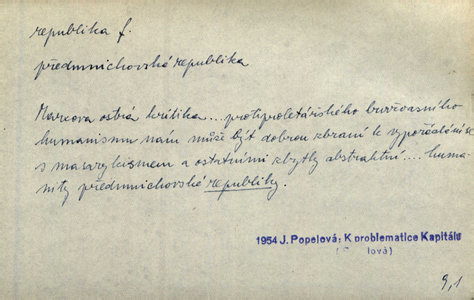 republika f.
předmnichovské republika
Marxova ostrá kritika... protiproletářského buržoasního
humanismu nám může být dobrou zbraní k vypořádání se
s masarykismem a ostatními zbytky abstraktní.... huma-
nity předmnichovské republiky.
1954 J. Popelová: K problematice Kapitálu
lová)
9,1